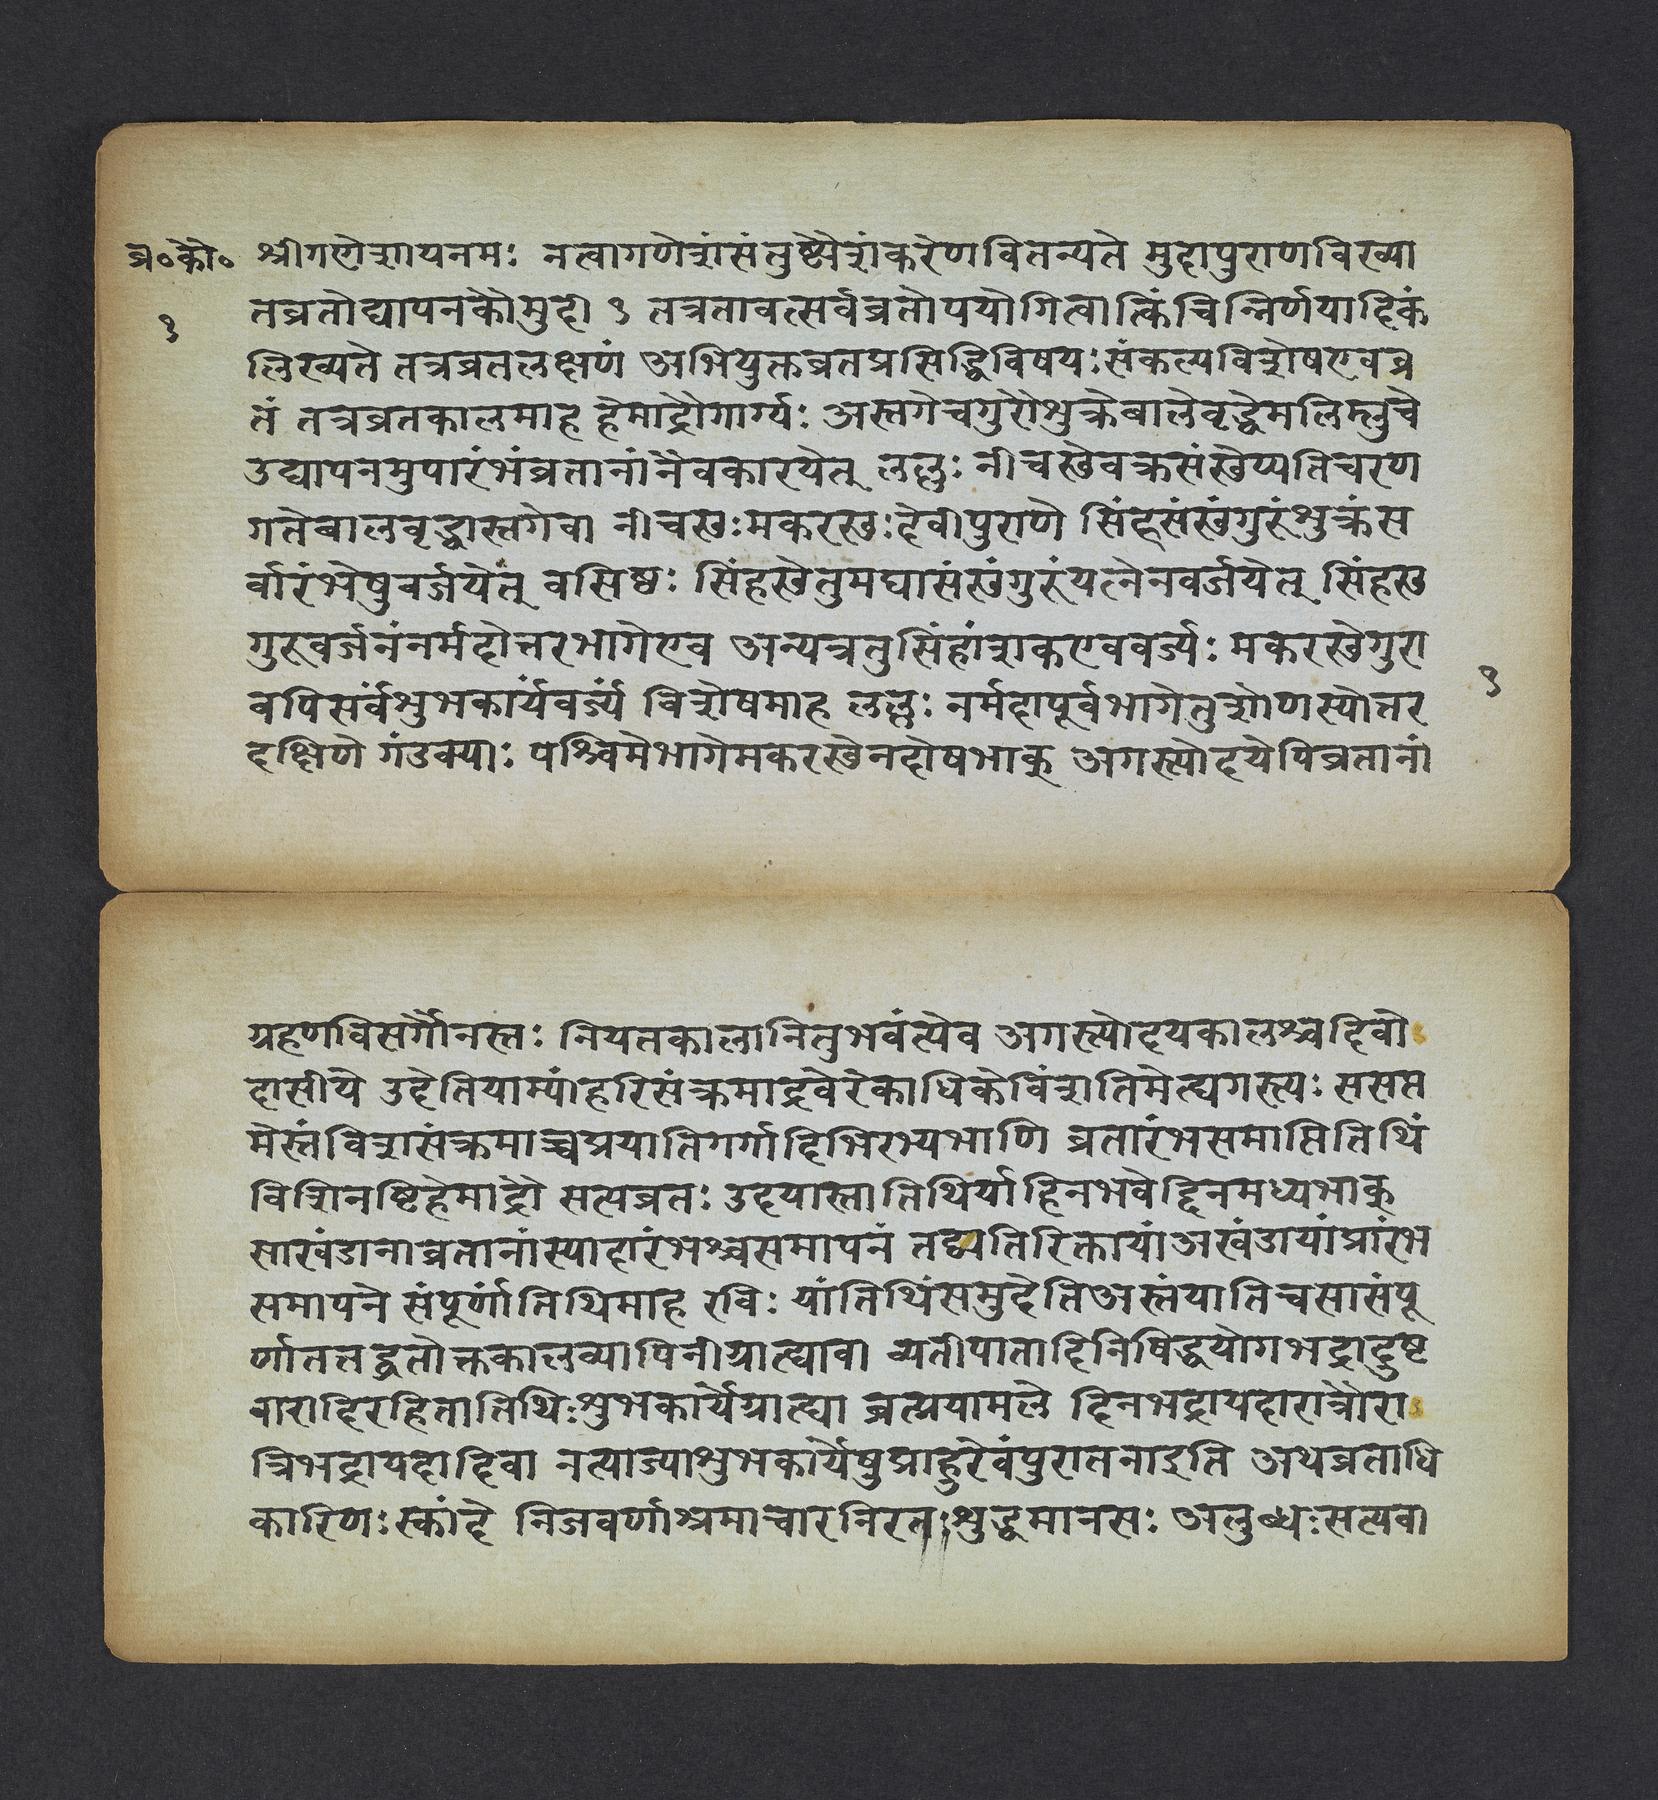 व्र॰कौ॰ श्रीगणेशायनमः नत्वागणेशंसंतुष्ट्यैशंकरेणवितन्यते मुदापुराणविख्या
१ तव्रतोद्यापनकौमुदी १ तत्रतावत्सर्वव्रतोपयोगित्वात्किंचिन्निर्णयादिकं
लिख्यते तत्रव्रतलक्षणं अभियुक्तव्रतप्रसिद्धिविषयःसंकल्पविशेषएवव्र
तं तत्रव्रतकालमाह हेमाद्रौगार्ग्यः अस्तगेचगुरौशुक्रेबालेवृद्धेमलिम्लुचे
उद्यापनमुपारंभंव्रतानांनैवकारयेत् लल्लः नीचस्थेवक्रसंस्थेप्यतिचरण
गतेबालवृद्धास्तगेवा नीचस्थःमकरस्थःदेवीपुराणे सिंहसंस्थंगुरुंशुक्रंस
र्वारंभेषुवर्जयेत् वसिष्ठः सिंहस्थेतुमघासंस्थंगुरुंयत्नेनवर्जयेत् सिंहस्थ
गुरुवर्जनंनर्मदोत्तरभागेएव अन्यत्रतुसिंहांशकएववर्ज्यः मकरस्थेगुरा
वपिसर्वंशुभकार्यंवर्ज्यं विशेषमाह लल्लः नर्मदापूर्वभागेतुशोणस्योत्तर
दक्षिणे गंडक्याः पश्चिमेभागेमकरस्थेनदोषभाक् अगस्त्योदयेपिव्रतानां
१
ग्रहणविसर्गौनस्तः नियतकालानितुभवंत्येव अगस्त्योदयकालश्चदिवो
दासीये उदेतियाम्यांहरिसंक्रमाद्रवेरेकाधिकेविंशतिमेत्द्यगस्त्यः ससप्त
मेस्तंविशसंक्रमाच्चप्रयातिगर्गादिभिरभ्यभाणि व्रतारंभसमाप्तितिथिं
विशिनष्टिहेमाद्रौ सत्यव्रतः उदयास्तातिथिर्याहिनभवेद्दिनमध्यभाक्
साखंडानाव्रतानांस्यादारंभश्चसमापनं तद्व्यतिरिक्तायांअखंडायांप्रारंभ
समापने संपूर्णांतिथिमाह रविः यांतिथिंसमुदेतिअस्तंयातिचसासंपू
र्णातत्तद्व्रतोक्तकालव्यापिनीग्रात्द्यावा व्यतीपातादिनिषिद्धयोगभद्रादुष्ट
वारादिरहितातिथिःशुभकार्येग्रात्द्या ब्रत्मयामले दिनभद्रायदारात्रौरा
त्रिभद्रायदादिवा नत्याज्याशुभकार्येषुप्राहुरेवंपुरातनाइति अथव्रताधि
कारिणः स्कांदे निजवर्णाश्रमाचारनिरतःशुद्धमानसः अलुब्धःसत्यवा